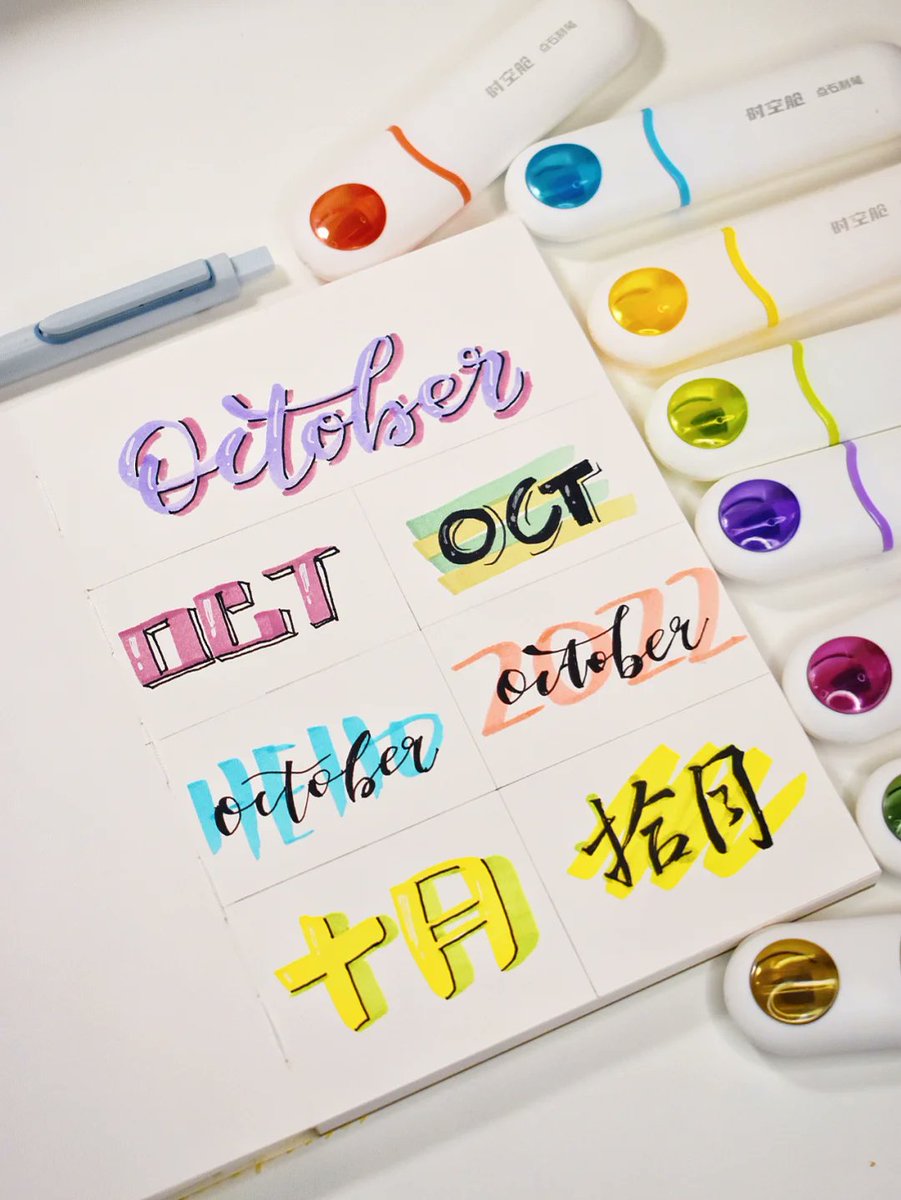 时空舱 点石制笔
时空舱 点石制笔
时空舱
October
OCT
OCT
2022
october
HELLO
october
拾月
十月